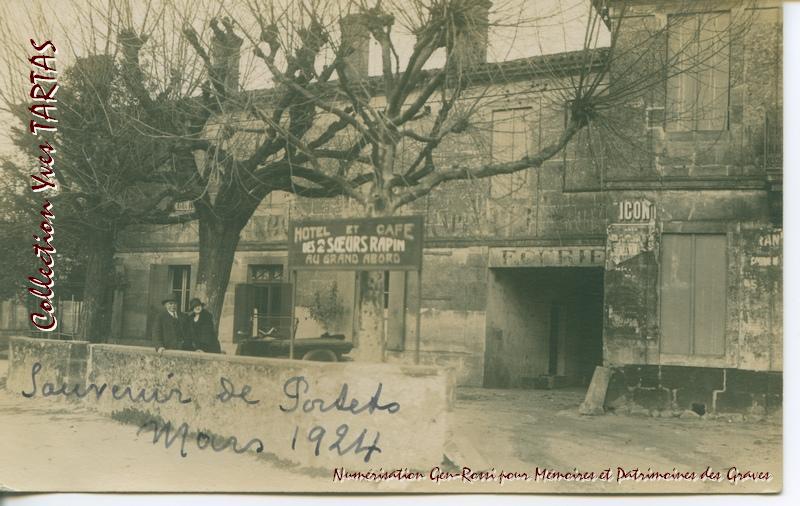 Collection Yves TARTAS
HOTEL ET CAFE
LES 2 SŒURS RAPIN
AU GRAND ABORD
ICON
Souvenir de Portets
Mars 1924
Numérisation Gen-Rossi pour Mémoires et Patrimoines des Graves